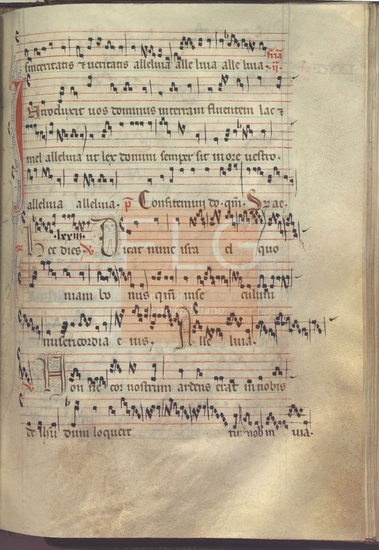 sinceritatis & veritatis alleluia alle luia alle luia. fria ij.
Introduxit uos dominus in terram fluentem lac &
mel alleluia ut lex domini semper sit in ore uestro.
alleluia alleluia. p Confitemini do. qm. Gr ae.
lxxiii.
hec dies. Dicat nunc isra el quo
niam bo nus qm inse culum
misericordia e ius, Alle luia.
Non ne cor nostrum ardens erat in nobis
de ihu dum loqueret tu nob in uia.